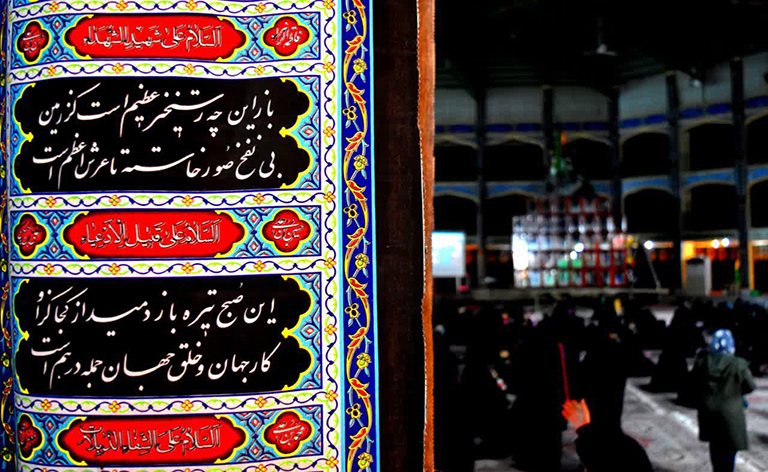 السلام علی شهید الشهداء
باز این چه رستخیز عظیم است کز زمین
بی نفخ صور خاسته تا عرش اعظم است
السلام علی قتیل الادعیاء
این صبح تیره باز دمید از کجا کزو
کار جهان و خلق جهان جمله درهم است
السلام علی الشفاه الذابلات